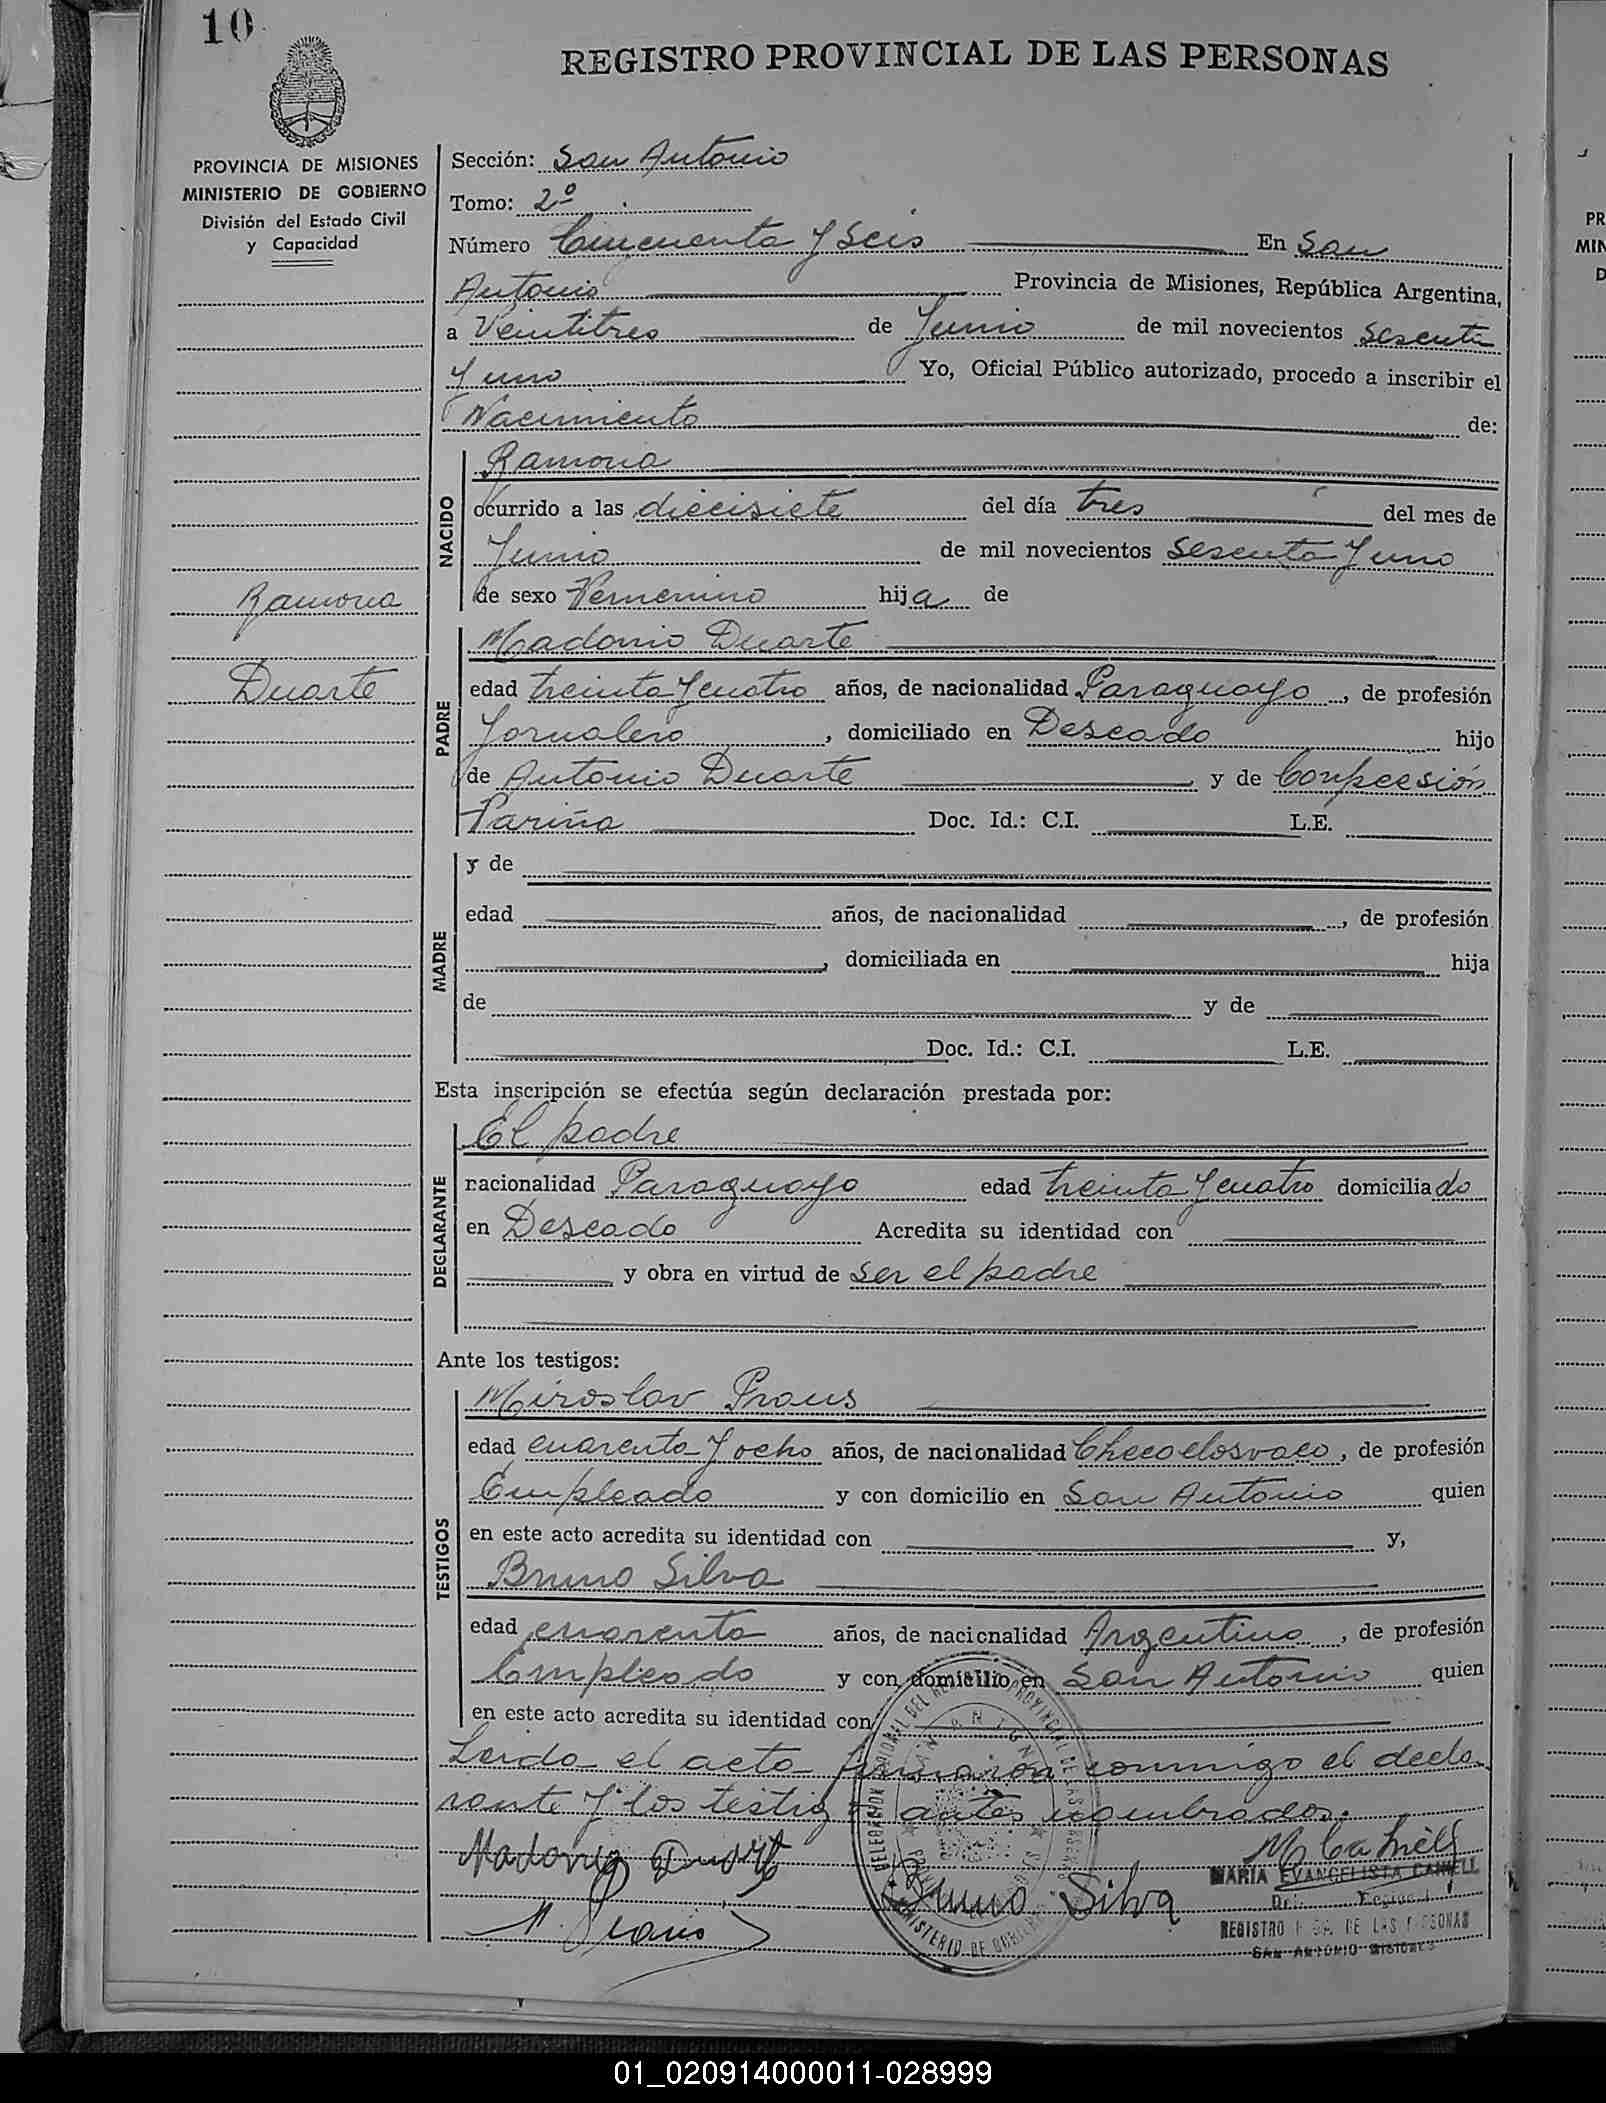 10
REGISTRO PROVINCIAL DE LAS PERSONAS
PROVINCIA DE MISIONES
MINISTERIO DE GOBIERNO
División del Estado Civil
y Capacidad
Sección: San Antonio
Tomo: 2º
Número Cincuenta y Seis En San
Antonio Provincia de Misiones, República Argentina,
a Veintitres de Junio de mil novecientos sesenta
y uno Yo, Oficial Público autorizado, procedo a inscribir el
Nacimiento de:
NACIDO
Ramona
ocurrido a las diecisiete del día tres del mes de
Junio de mil novecientos sesenta y uno
de sexo Femenino hija de
Ramona
Duarte
PADRE
Madonio Duarte
edad treinta y cuatro años, de nacionalidad Paraguayo, de profesión
Jornalero, domiciliado en Deseado hijo
de Antonio Duarte y de Conpcesión
Fariña Doc. Id.: C.I. L.E.
MADRE
y de
edad años, de nacionalidad , de profesión
, domiciliada en hija
de y de
Doc. Id.: C.I. L.E.
Esta inscripción se efectúa según declaración prestada por:
DECLARANTE
El padre
nacionalidad Paraguayo edad treinta y cuatro domiciliado
en Deseado Acredita su identidad con
y obra en virtud de ser el padre
Ante los testigos:
TESTIGOS
Miroslav Praus
edad cuarenta y ocho años, de nacionalidad Checoelosvaco, de profesión
Empleado y con domicilio en San Antonio quien
en este acto acredita su identidad con y,
Bruno Silva
edad cuarenta años, de nacionalidad Argentino, de profesión
Empleado y con domicilio en San Antonio quien
en este acto acredita su identidad con
Leida el acta firmaron conmigo el decla
rante y los testigos antes nombrados.
Bruno Silva
MARIA EVANGELISTA
REGISTRO DE LAS PERSONAS
SAN ANTONIO MISIONES
01_020914000011-028999